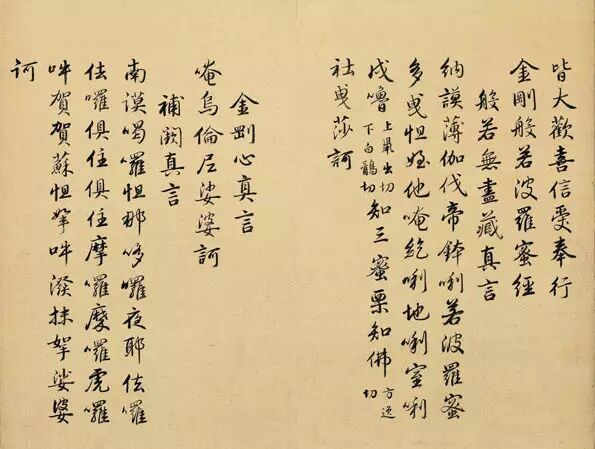 皆大歡喜信受奉行
金剛般若波羅蜜經
般若無盡藏真言
納謨薄伽伐帝鉢唎若波羅蜜
多曳怛姪他唵紇唎地唎室唎
戍嚕上鼠出切下白鵠切知三蜜栗知佛方逸切
社曳莎訶
金剛心真言
唵烏倫尼娑婆訶
補闕真言
南謨喝囉怛那哆囉夜耶佉囉
佉囉俱住俱住摩囉摩囉虎囉
吽賀賀蘇怛拏吽潑抹拏娑婆
訶